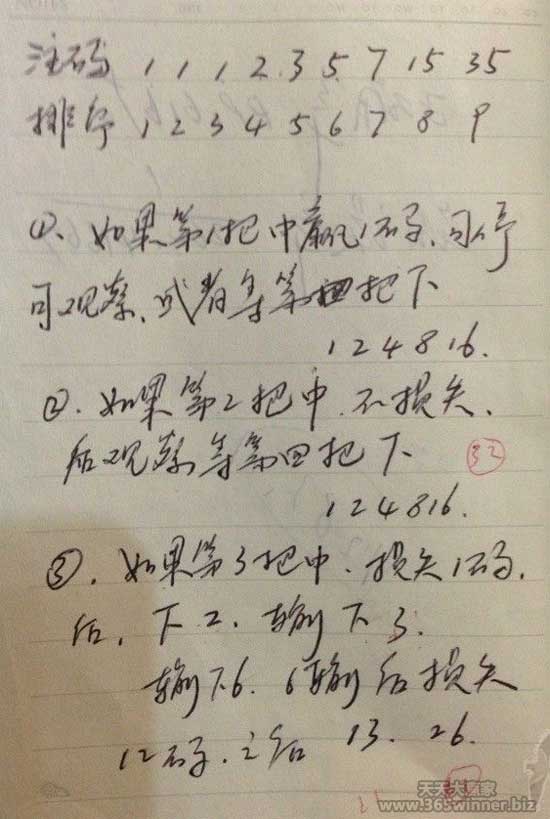 注码 1 1 1 2 3 5 7 15 35
排序 1 2 3 4 5 6 7 8 9
①、如果第1把中赢1码、可停
可观察、或者等第四把下
1 2 4 8 16.
②、如果第2把中、不损失、
后观察等第四把下
32
1 2 4 8 16.
③、如果第3把中、损失1码、
后、下2、输下3.
输下6、6输后损失
12码、之后 13. 26.
天天大赢家
www.365winner.biz